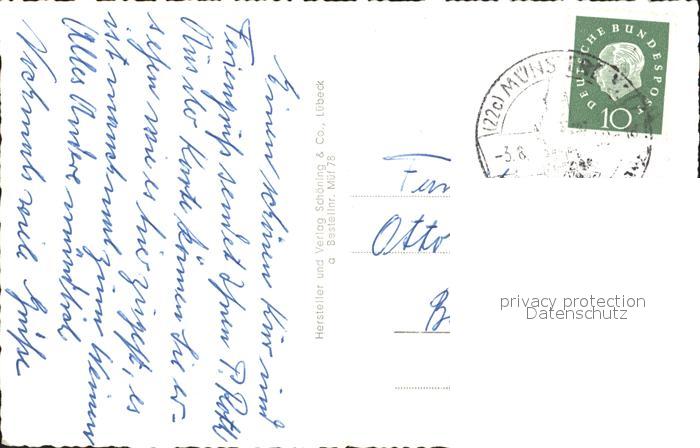 Einen schönen Kur und
Feriengruß sendet Ihnen P. Roth
Aus der Karte können Sie er-
sehen wie es hier zugeht, es
ist manchmal zum Weinen
Alles Andere mündlich
Nochmals viele Grüße
Hersteller und Verlag Schöning & Co., Lübeck
a Bestellnr. Müf 78
DEUTSCHE BUNDESPOST
10
(22c) MÜNSTEREIFEL
-3.8.
Otto
B
privacy protection
Datenschutz